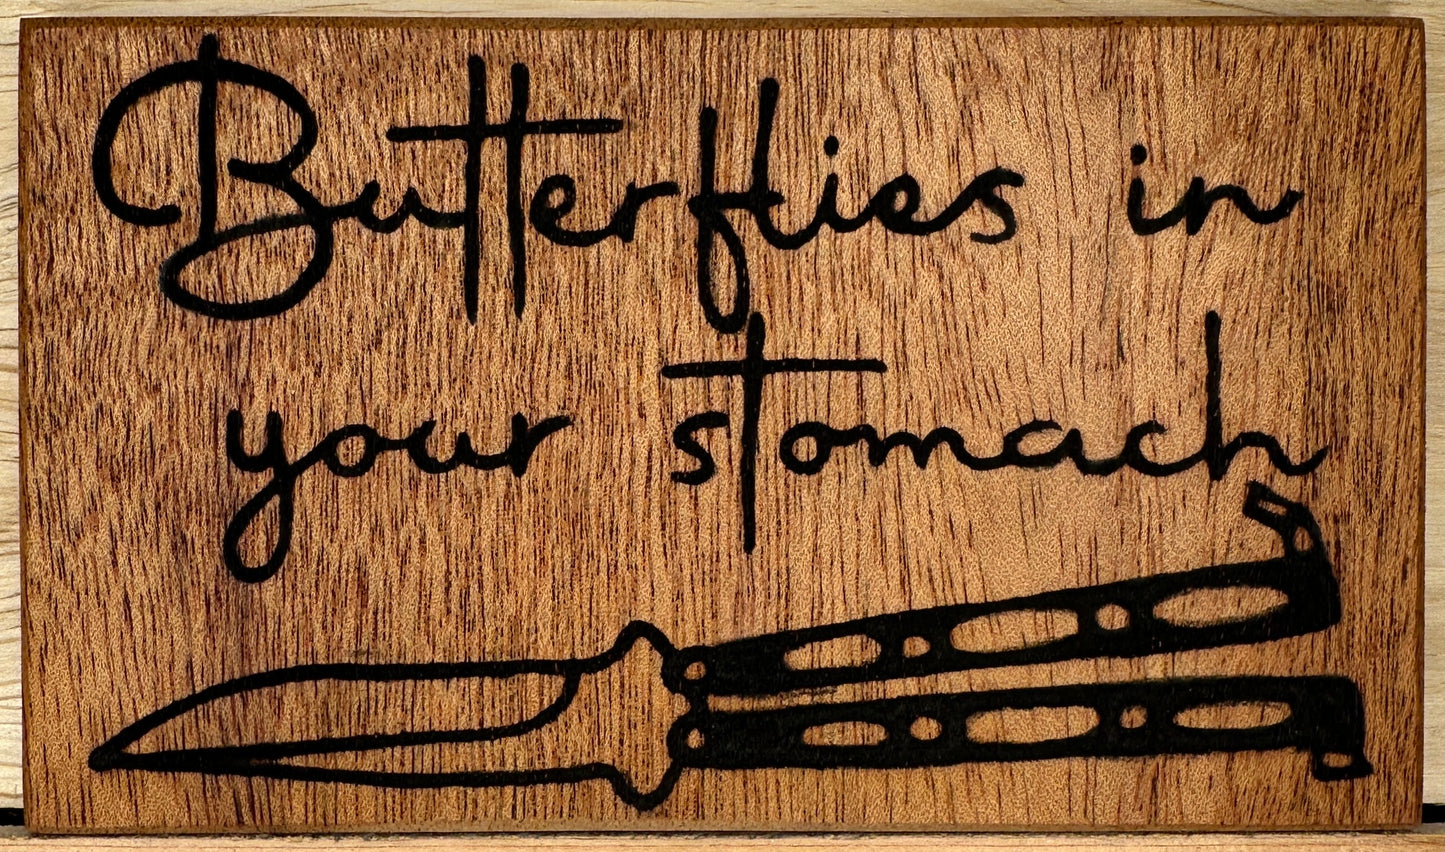 Butterflies in
your stomach